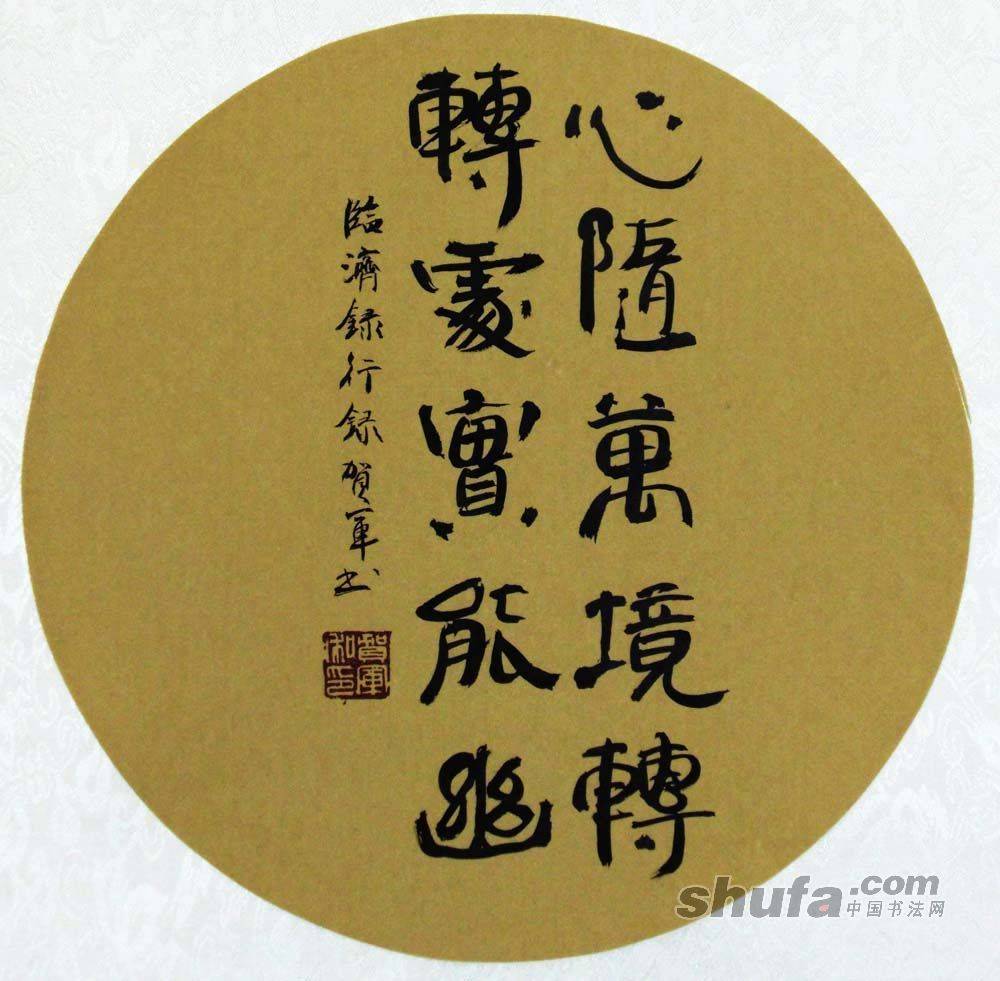 心隨萬境轉
轉處實能幽
臨濟録行録賀軍书
賀軍私印
shufa.com
中国书法网